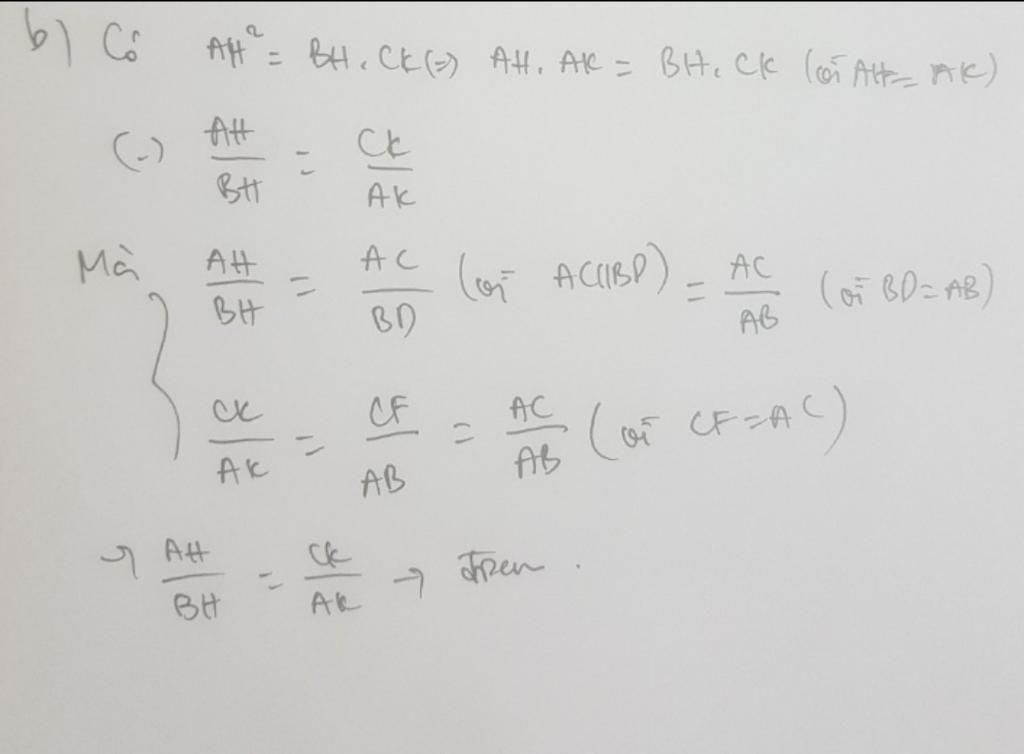 b) Có AH² = BH . CK (=) AH . AK = BH . CK (vì AH = AK)
(=) AH/BH = CK/AK
Mà AH/BH = AC/BD (vì AC//BD) = AC/AB (vì BD = AB)
CK/AK = CF/AB = AC/AB (vì CF = AC)
→ AH/BH = CK/AK → đpcm .